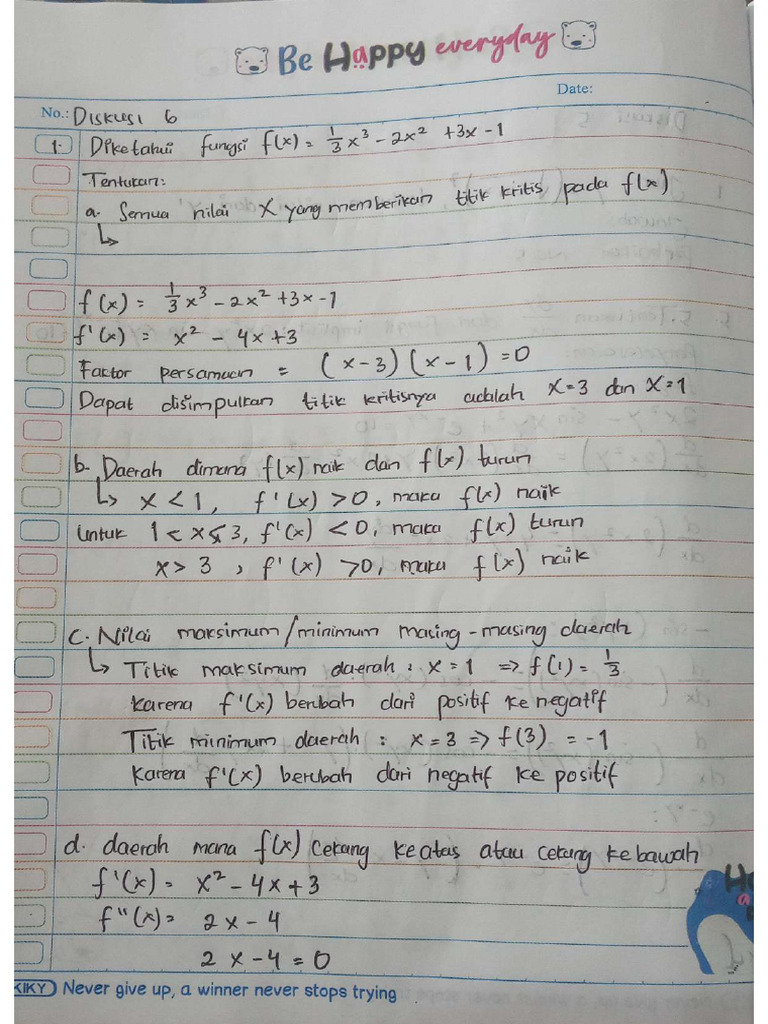 Be Happy everyday
Date:
No.: Diskusi 6
1. Diketahui fungsi f(x) = 1/3 x³ - 2x² + 3x - 1
Tentukan:
a. Semua nilai X yang memberikan titik kritis pada f(x)
↳
f(x) = 1/3 x³ - 2x² + 3x - 1
f'(x) = x² - 4x + 3
Factor persamaan = (x-3) (x-1) = 0
Dapat disimpulkan titik kritisnya adalah x=3 dan x=1
b. Daerah dimana f(x) naik dan f(x) turun
↳ x < 1, f'(x) > 0, maka f(x) naik
untuk 1 < x ≤ 3, f'(x) < 0, maka f(x) turun
x > 3, f'(x) > 0, maka f(x) naik
c. Nilai maksimum/minimum masing-masing daerah
↳ Titik maksimum daerah : x = 1 => f(1) = 1/3
karena f'(x) berubah dari positif ke negatif
Titik minimum daerah : x = 3 => f(3) = -1
karena f'(x) berubah dari negatif ke positif
d. daerah mana f(x) cekang keatas atau cekung kebawah
f'(x) = x² - 4x + 3
f"(x) = 2x - 4
2x - 4 = 0
KIKY Never give up, a winner never stops trying